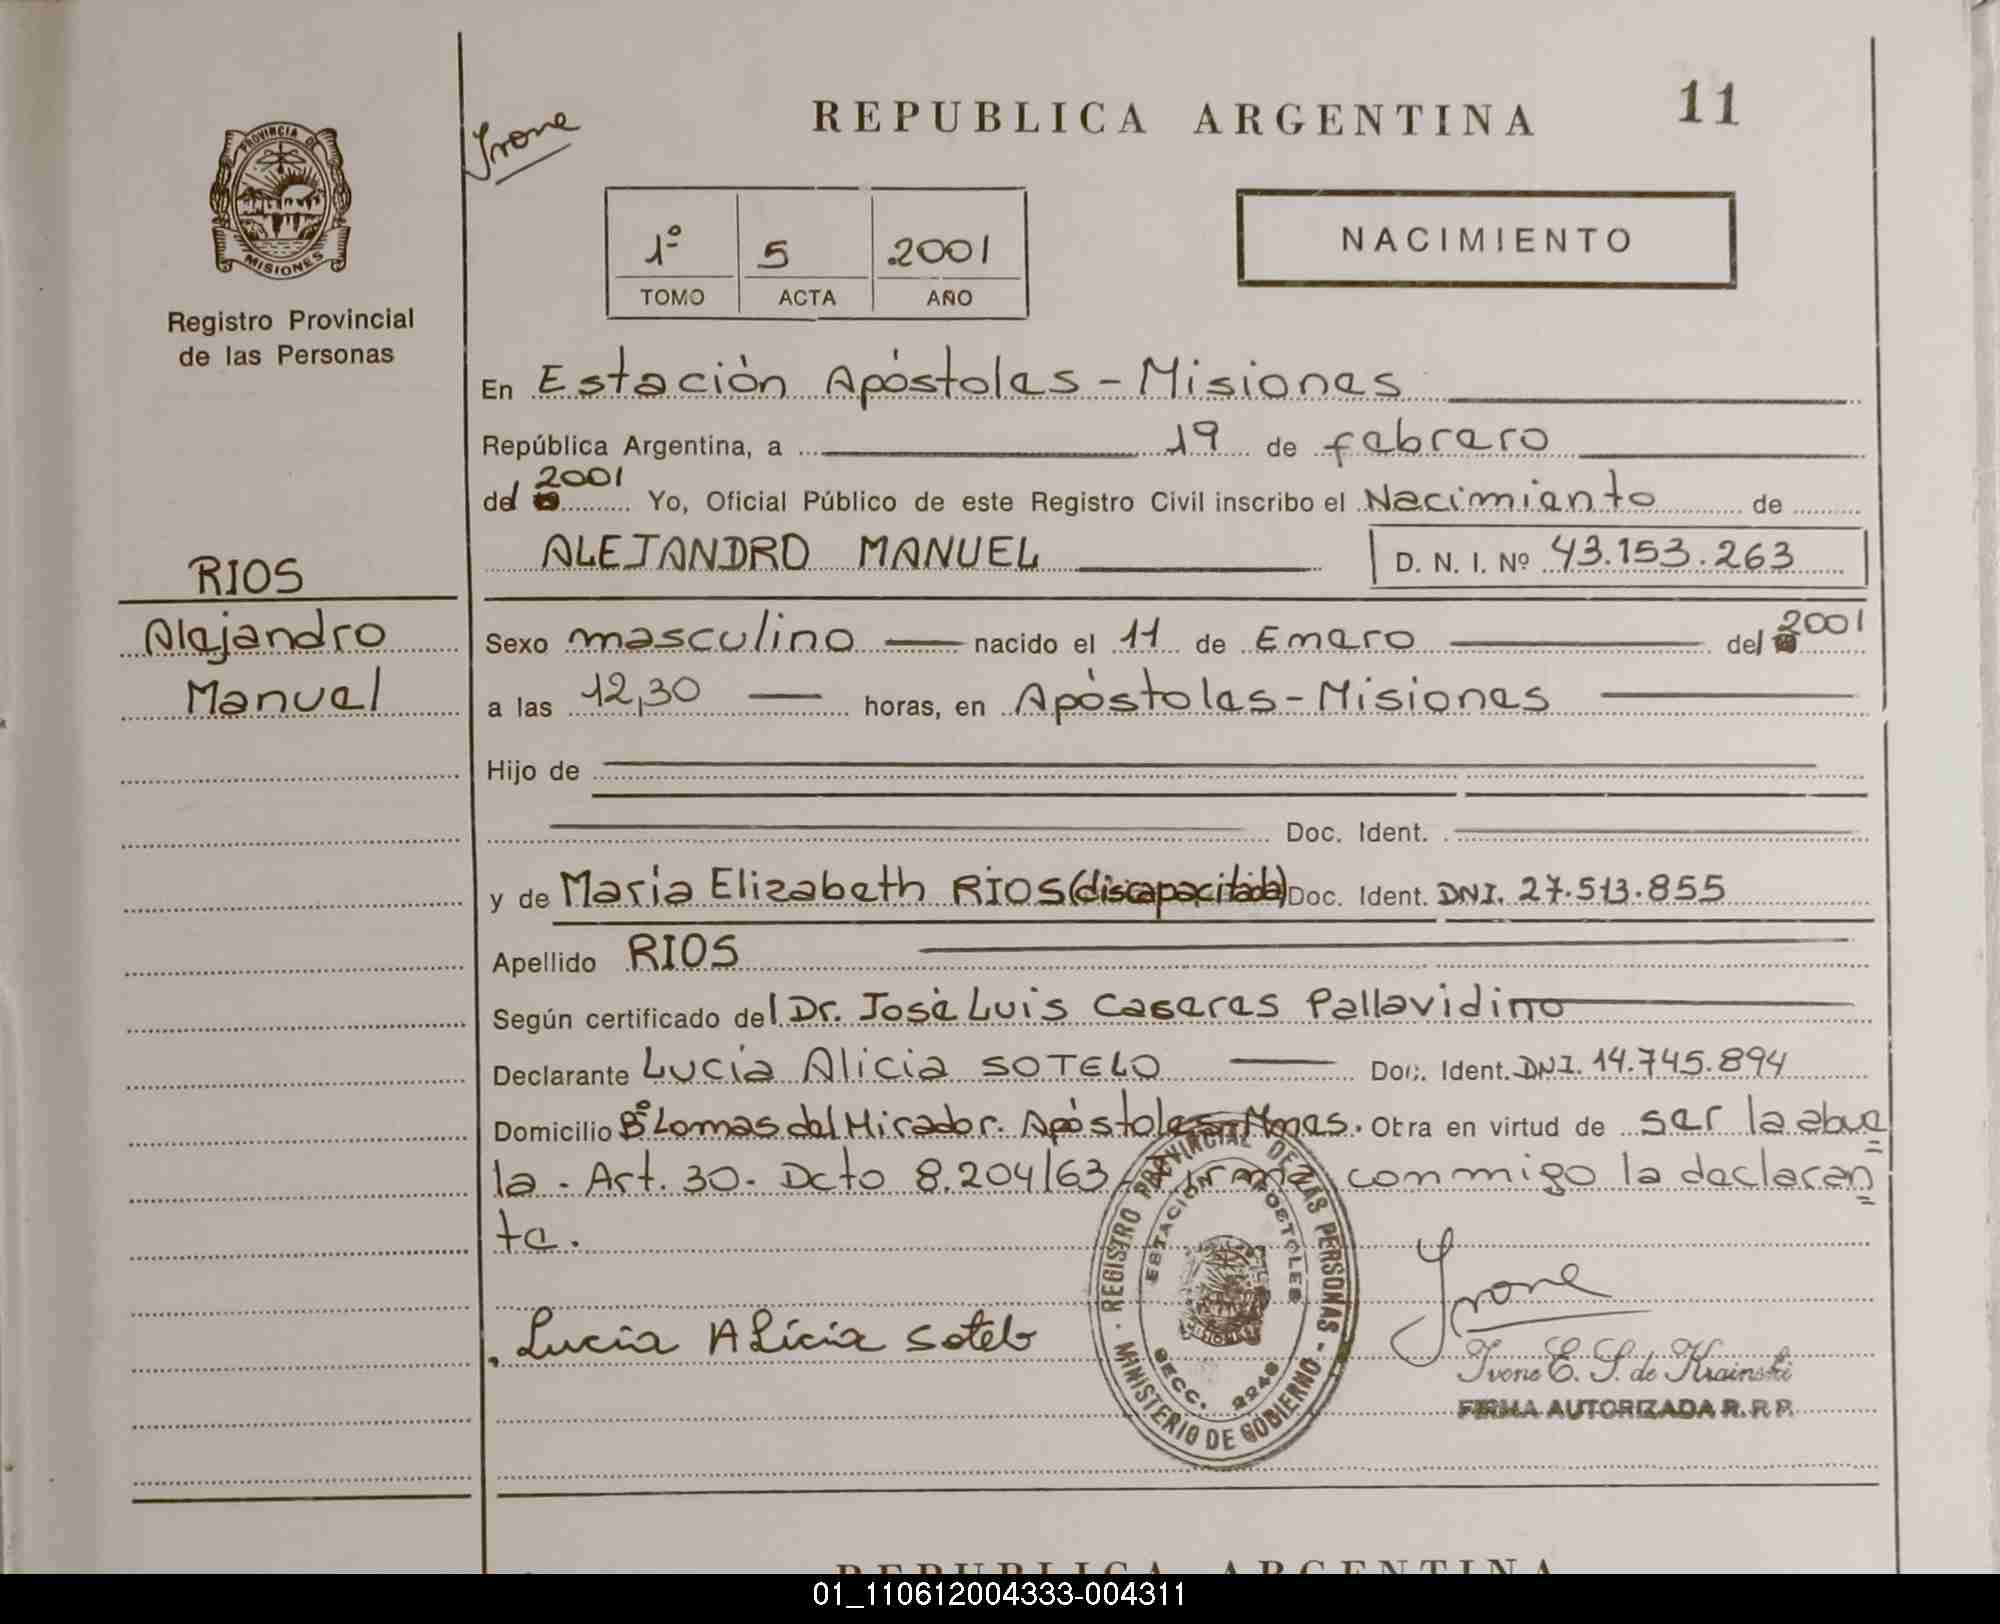 REPUBLICA ARGENTINA
11
Ivone
PROVINCIA DE
MISIONES
Registro Provincial
de las Personas
1º 5 2001
TOMO ACTA AÑO
NACIMIENTO
En Estación Apóstoles - Misiones
República Argentina, a 19 de febrero
del 2001 Yo, Oficial Público de este Registro Civil inscribo el Nacimiento de
ALEJANDRO MANUEL D. N. I. Nº 43.153.263
RIOS
Alejandro
Manuel
Sexo masculino nacido el 11 de Enero del 2001
a las 12,30 horas, en Apóstoles - Misiones
Hijo de
Doc. Ident.
y de Maria Elizabeth RIOS (discapacitada) Doc. Ident. DNI. 27.513.855
Apellido RIOS
Según certificado del Dr. José Luis Caseres Pallavidino
Declarante Lucia Alicia SOTELO Doc. Ident. DNI. 14.745.894
Domicilio Bº Lomas del Mirador. Apóstoles - Mnes. Obra en virtud de ser la abue
la. Art. 30. Dcto 8.204/63 - Firma conmigo la declaran
te.
Lucia Alicia Sotelo
REGISTRO PROVINCIAL DE LAS PERSONAS - MINISTERIO DE GOBIERNO -
ESTACION APOSTOLES
SECC. 2248
MISIONES
Ivone
Ivone E. S. de Krainski
FIRMA AUTORIZADA R. R. P.
REPUBLICA ARGENTINA
01_110612004333-004311